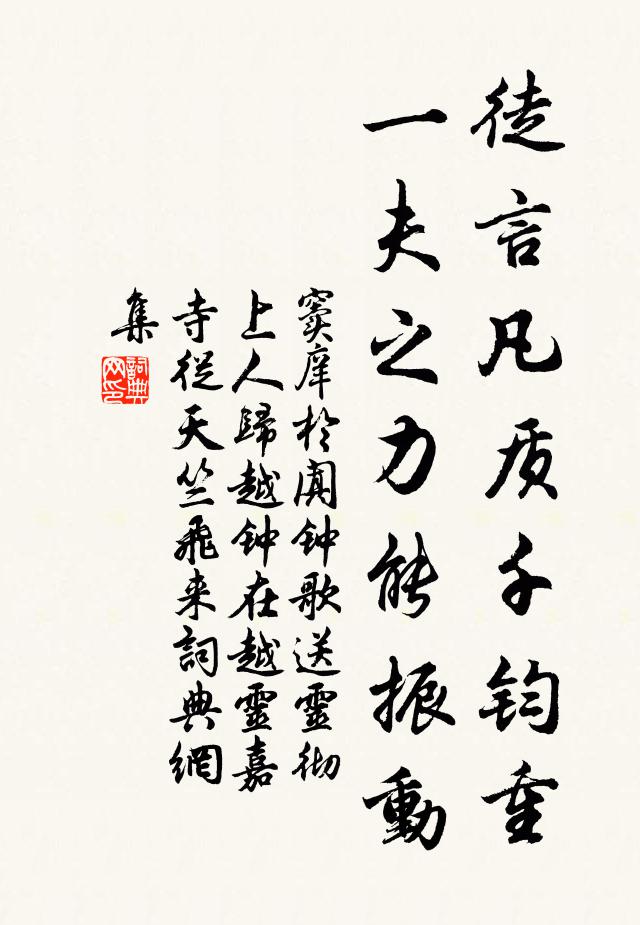 徒言凡质千钧重
一夫之力能振動
窦庠於闐钟歌送靈彻
上人歸越钟在越靈嘉
寺從天竺飛来詞典網
集
詞典网印